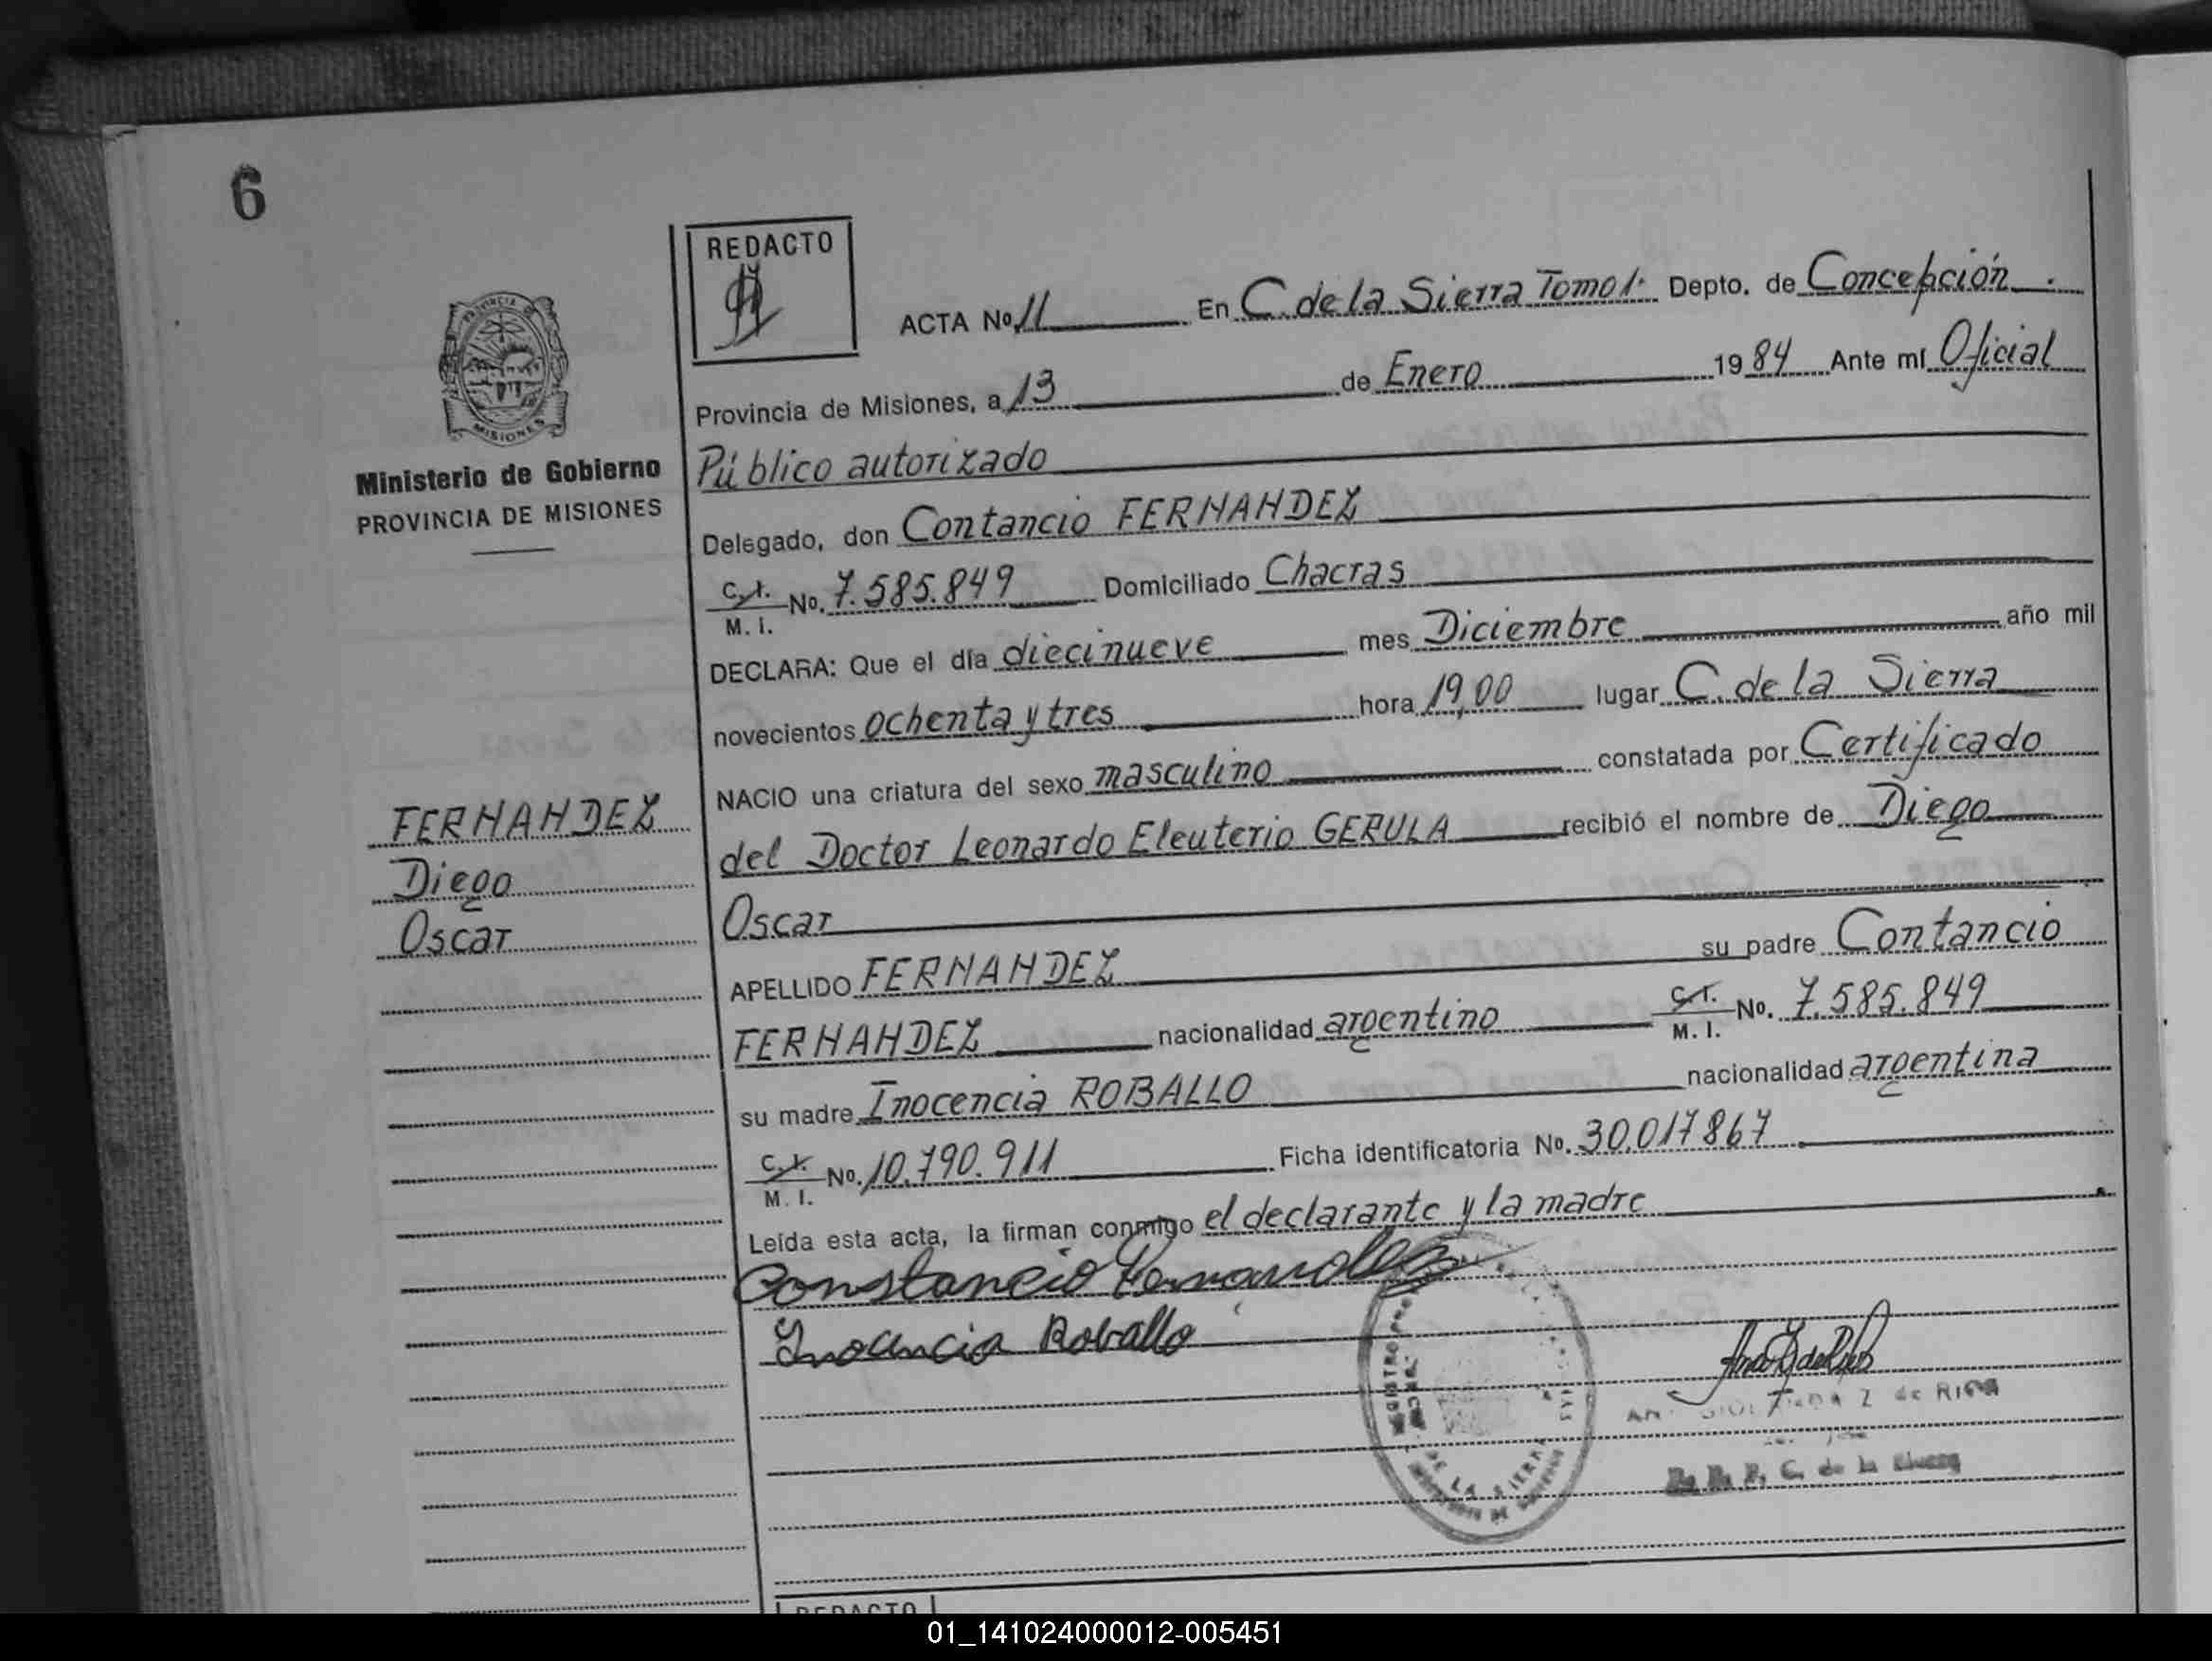 6
REDACTO
ACTA No. 11 En C. de la Sierra Tomo 1. Depto. de Concepción.
Provincia de Misiones, a 13 de Enero 1984 Ante mí Oficial
Público autorizado
Delegado, don Contancio FERNANDEZ
C. I. M. I. No. 7.585.849 Domiciliado Chacras
DECLARA: Que el día diecinueve mes Diciembre año mil
novecientos ochenta y tres hora 19,00 lugar C. de la Sierra
NACIO una criatura del sexo masculino constatada por Certificado
del Doctor Leonardo Eleuterio GERULA recibió el nombre de Diego
Oscar
APELLIDO FERNANDEZ su padre Contancio
FERNANDEZ nacionalidad argentino C. I. M. I. No. 7.585.849
su madre Inocencia ROBALLO nacionalidad argentina
C. I. M. I. No. 10.790.911 Ficha identificatoria No. 30.017867
Leída esta acta, la firman conmigo el declarante y la madre
Constancio Fernandez
Inocencia Roballo
DE LA SIERRA
Z de RIOS
C. de la Sierra
PROVINCIA DE
MISIONES
Ministerio de Gobierno
PROVINCIA DE MISIONES
FERNANDEZ
Diego
Oscar
REDACTO
01_141024000012-005451